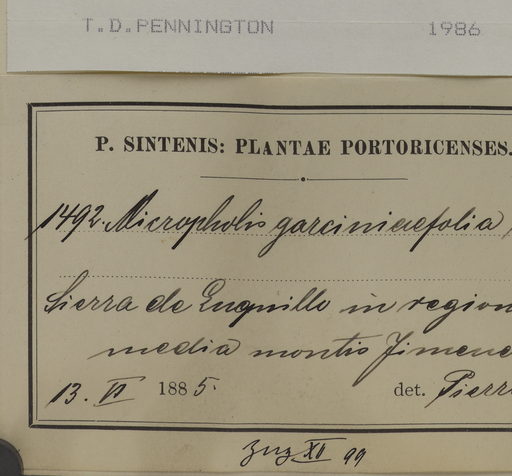 T.D.PENNINGTON 1986
P. SINTENIS: PLANTAE PORTORICENSES.
1492. Micropholis garciniaefolia
Sierra de Luquillo in region
media montis Jimene
13. VI 1885. det. Pierr
XII 99